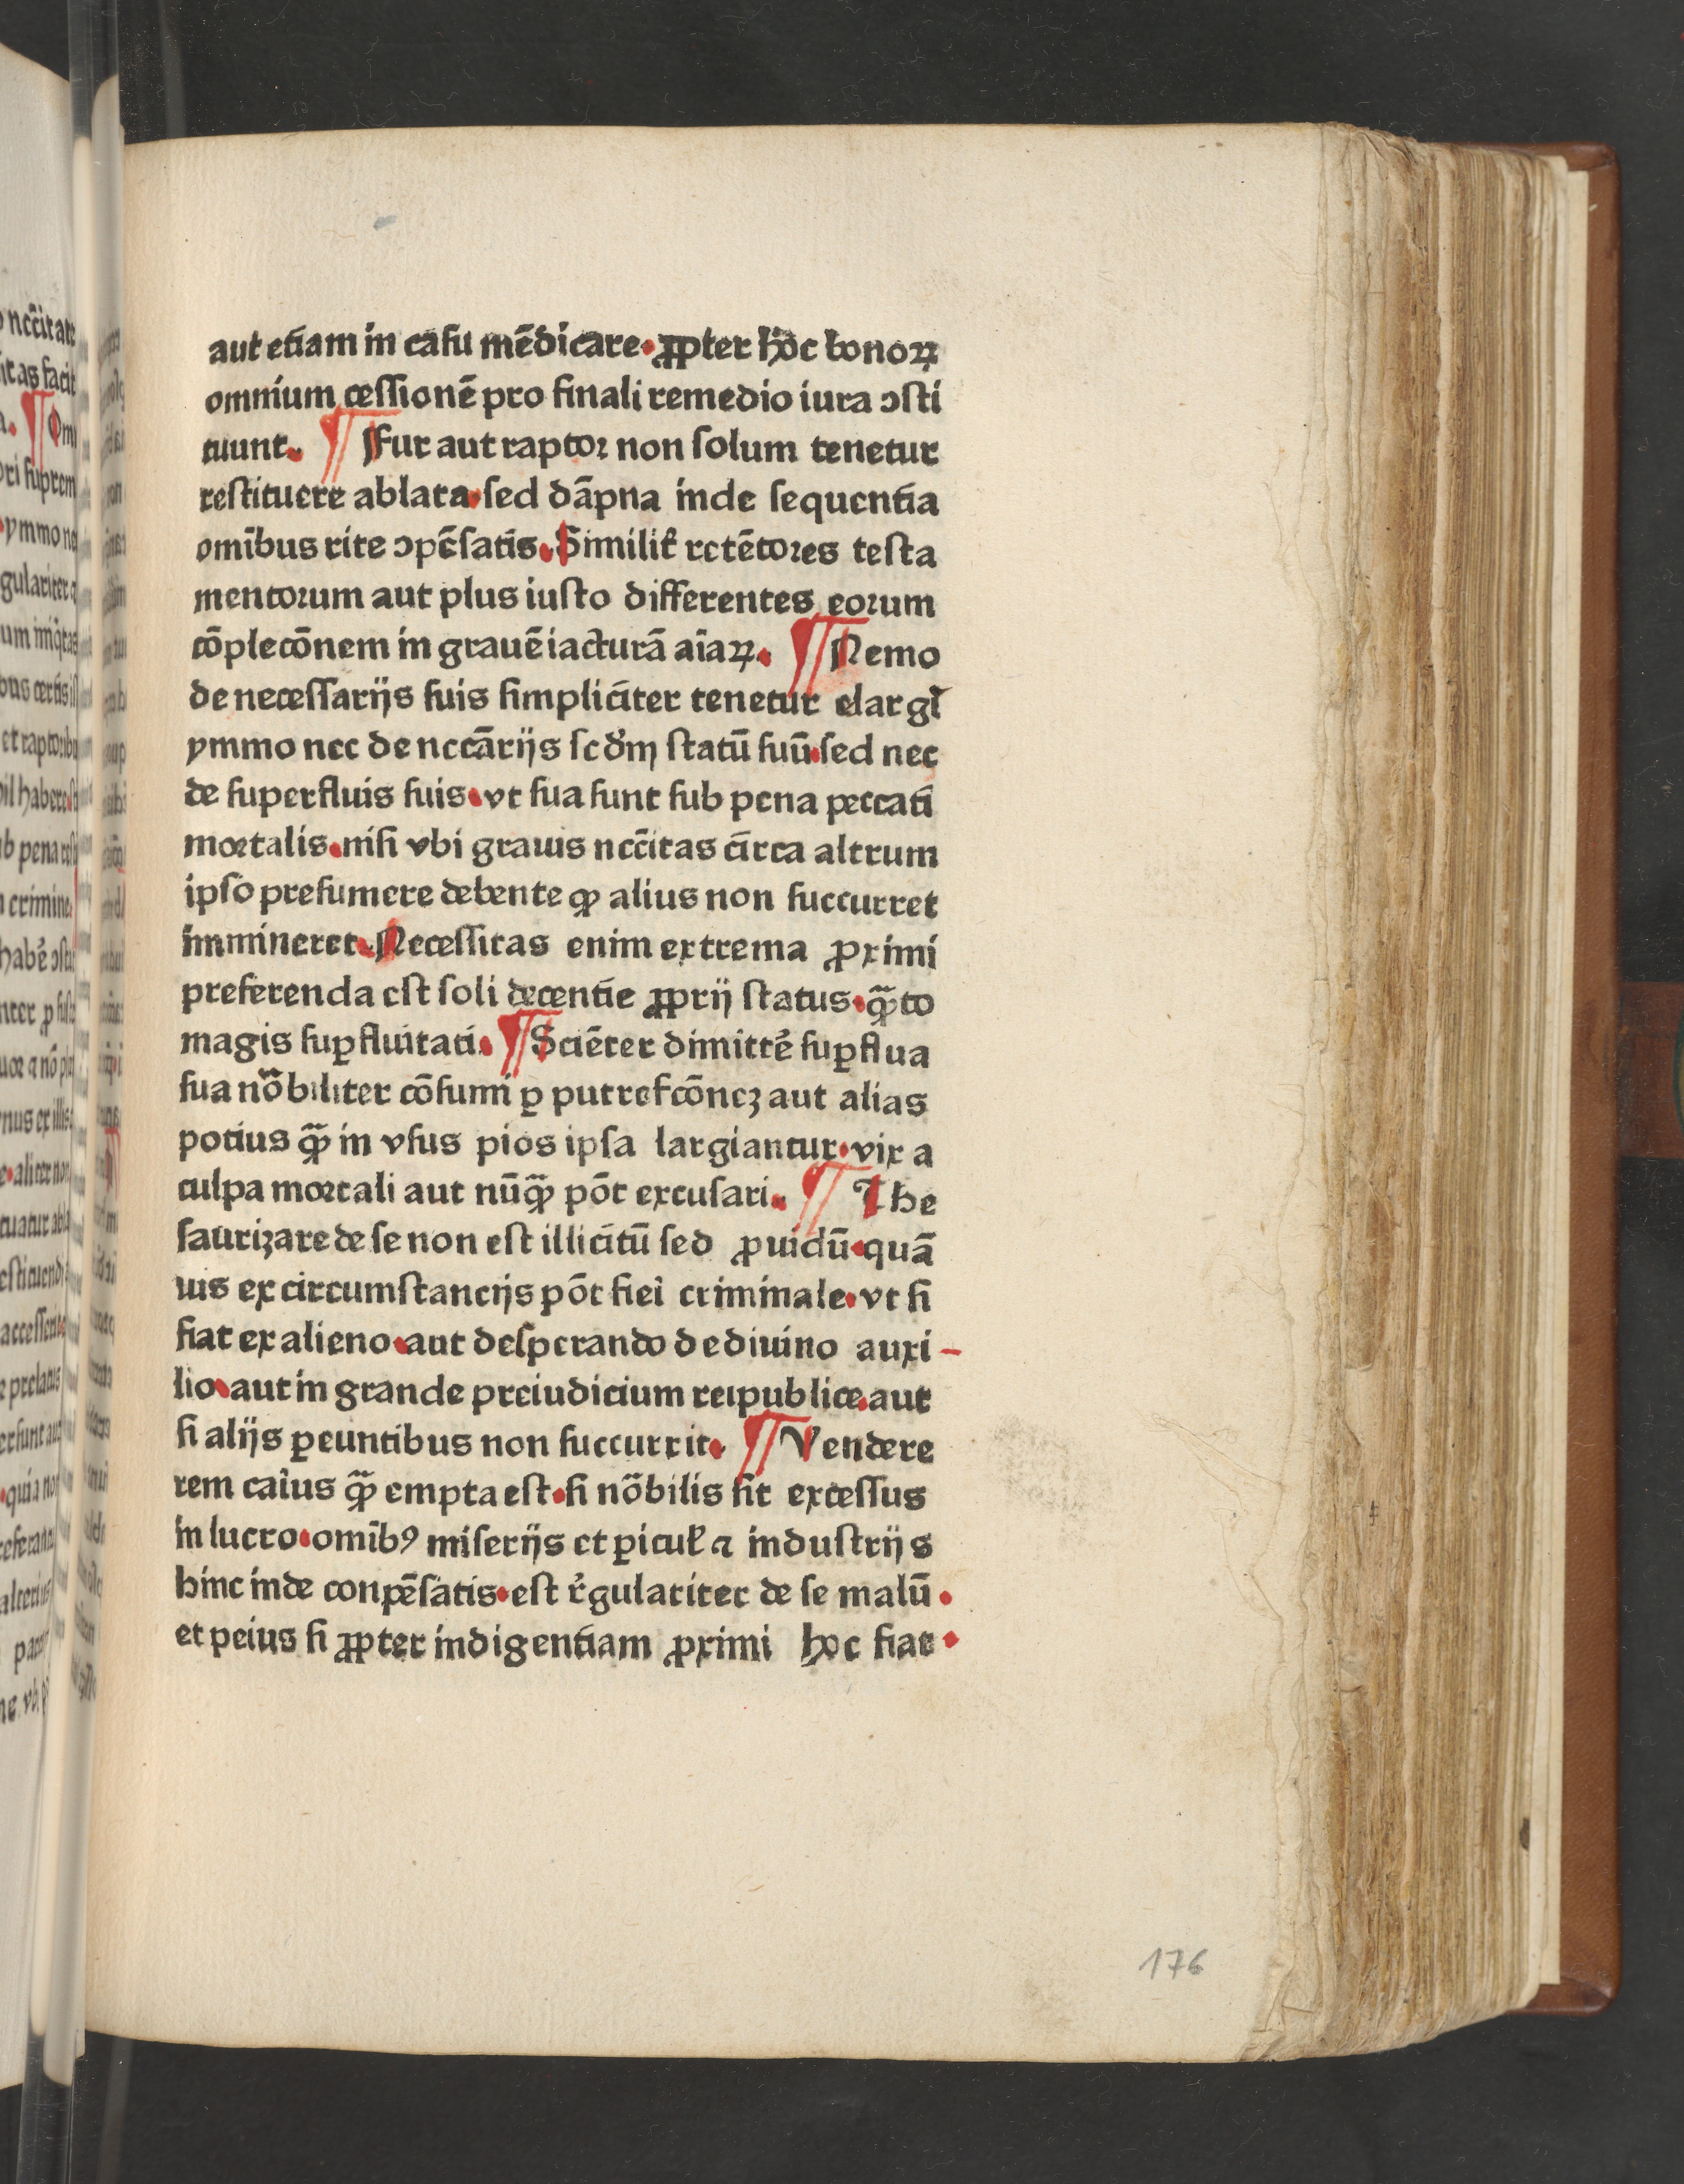 aut etiam in casu mēdicare. ꝓpter hoc bonoꝝ
omnium cessionē pro finali remedio iura ɔsti
tuunt. ¶ Fur aut raptor non solum tenetur
restituere ablata. sed dāpna inde sequentia
omībus rite ɔpēsatis. Similit̄ retētores testa
mentorum aut plus iusto differentes eorum
cōplecōnem in grauē iacturā aīaꝝ. ¶ Nemo
de necessarijs suis simpliciter tenetur elargi
ymmo nec de nccārijs scdm̄ statū suū. sed nec
de superfluis suis. vt sua sunt sub pena peccati
mortalis. nisi vbi grauis nccītas circa altrum
ipso presumere debente ꝙ alius non succurret
immineret. Necessitas enim extrema ꝓximi
preferenda est soli decentie ꝓprij status. q̄to
magis suꝑfluitati. ¶ Sciēter dimittē suꝑflua
sua nōbiliter cōsumi ꝑ putrefcōnez aut alias
potius ꝙ̄ in vsus pios ipsa largiantur. vix a
culpa mortali aut nūꝙ̄ pōt excusari. ¶ The
saurizare de se non est illicitū sed ꝓuidū. quā
uis ex circumstancijs pōt fiei criminale. vt si
fiat ex alieno. aut desperando de diuino auxi-
lio. aut in grande preiudicium reipublice. aut
si alijs ꝑeuntibus non succurrit. ¶ Vendere
rem caīus ꝙ̄ empta est. si nōbilis sit excessus
in lucro. omībꝰ miserijs et ꝑicul̄ ⁊ industrijs
hinc inde conpēsatis. est r̄gulariter de se malū.
et peius si ꝓpter indigentiam ꝓximi hoc fiat.
176